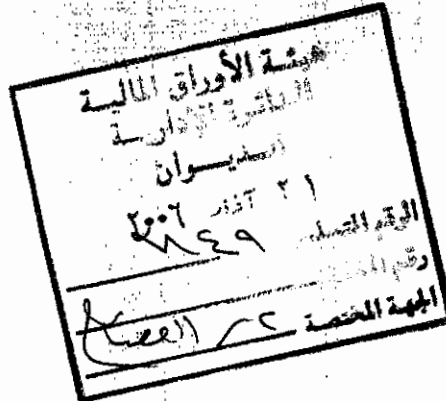 هيئة الأوراق المالية
الدائرة الإدارية
الديـوان
٢١ آذار ٢٠٠٦
الرقم المتسلسل
رقم الملف
الجهة المختصة